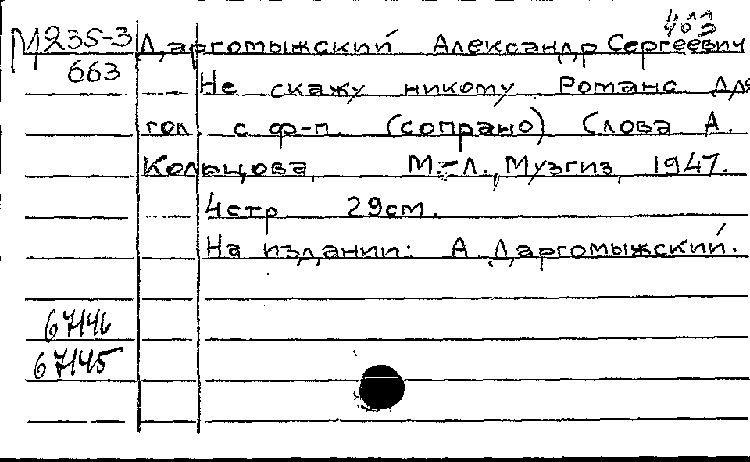 М235-3 Даргомыжский Александр Сергеевич
663
Не скажу никому. Романс для
гол. с ф-п. (сопрано) Слова А.
Кольцова, М.-Л., Музгиз, 1947.
4стр 29см.
На издании: А. Даргомыжский.
67146
67145